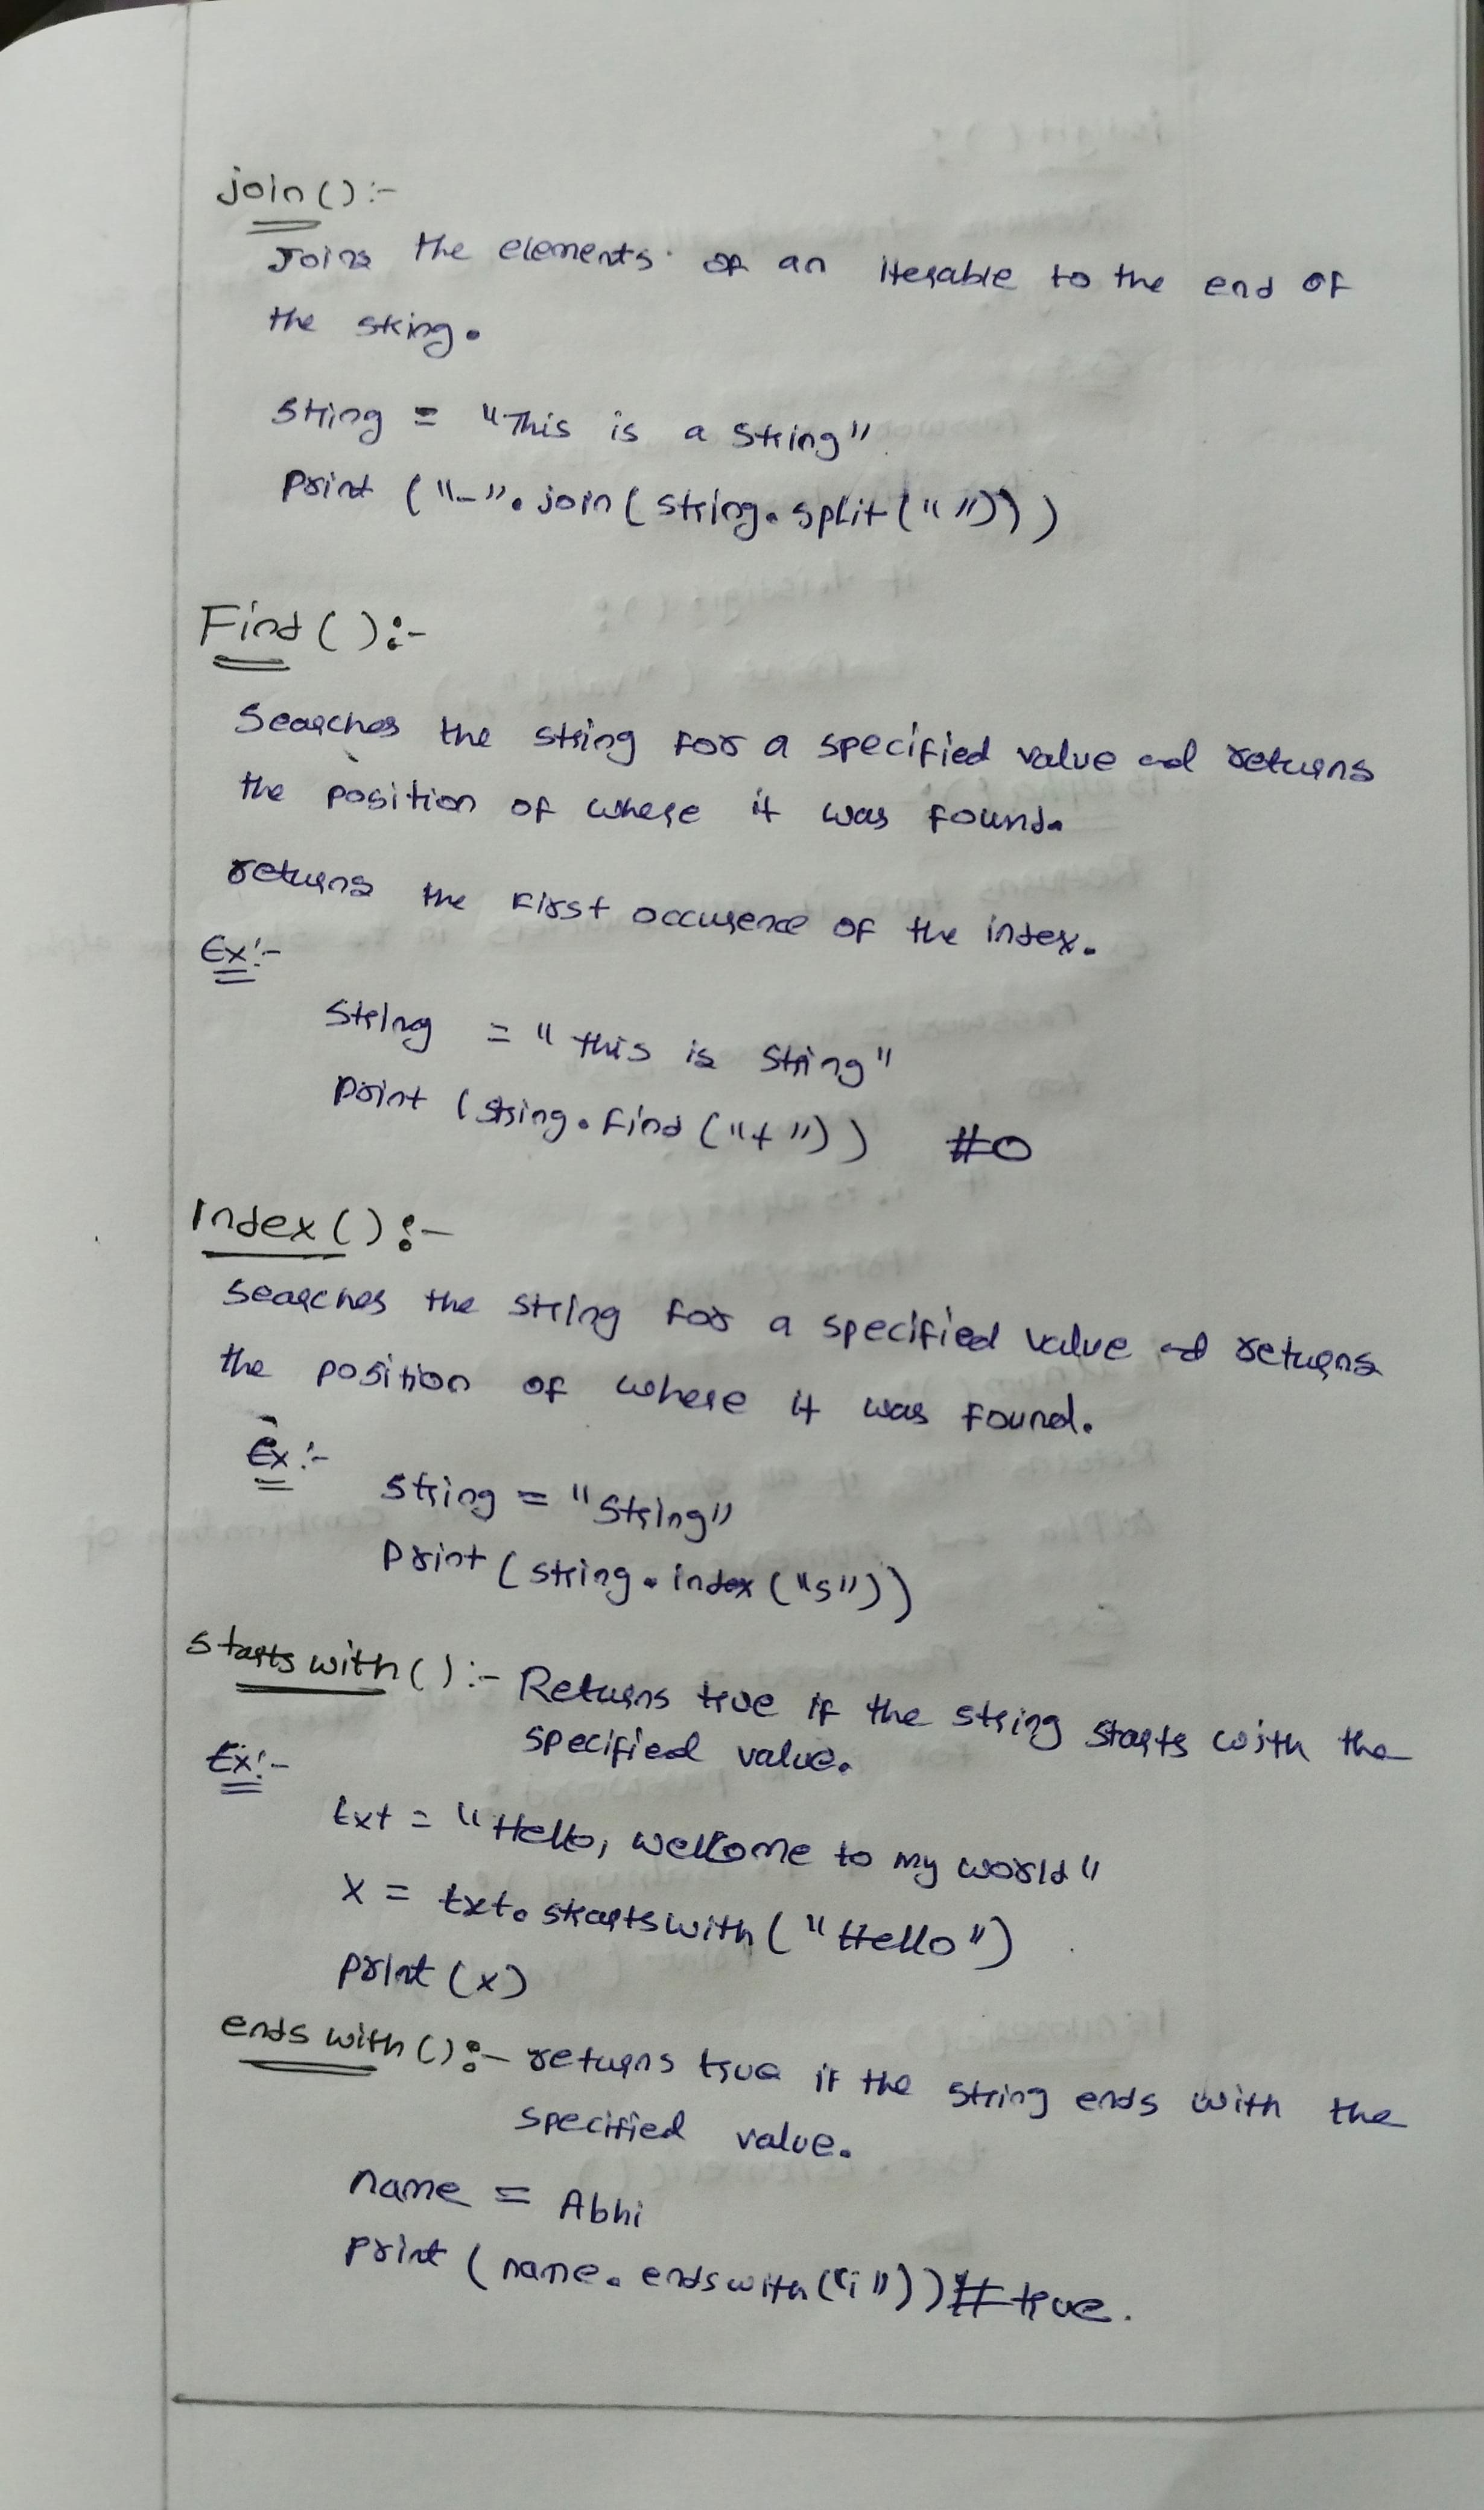 join() :-
Joins the elements of an iterable to the end of
the string.
string = "This is a string"
print ("-".join(string.split(" ")))
Find() :-
Searches the string for a specified value and returns
the position of where it was found.
returns the first occurence of the index.
Ex:-
String = "this is string"
print (string.find("t")) #0
Index() :-
Searches the string for a specified value and returns
the position of where it was found.
Ex:-
string = "string"
print (string.index("s"))
starts with() :- Returns true if the string starts with the
specified value.
Ex:-
txt = "Hello, welcome to my world"
x = txt.startswith("Hello")
print (x)
ends with() :- returns true if the string ends with the
specified value.
name = Abhi
print (name.endswith("i")) # true.